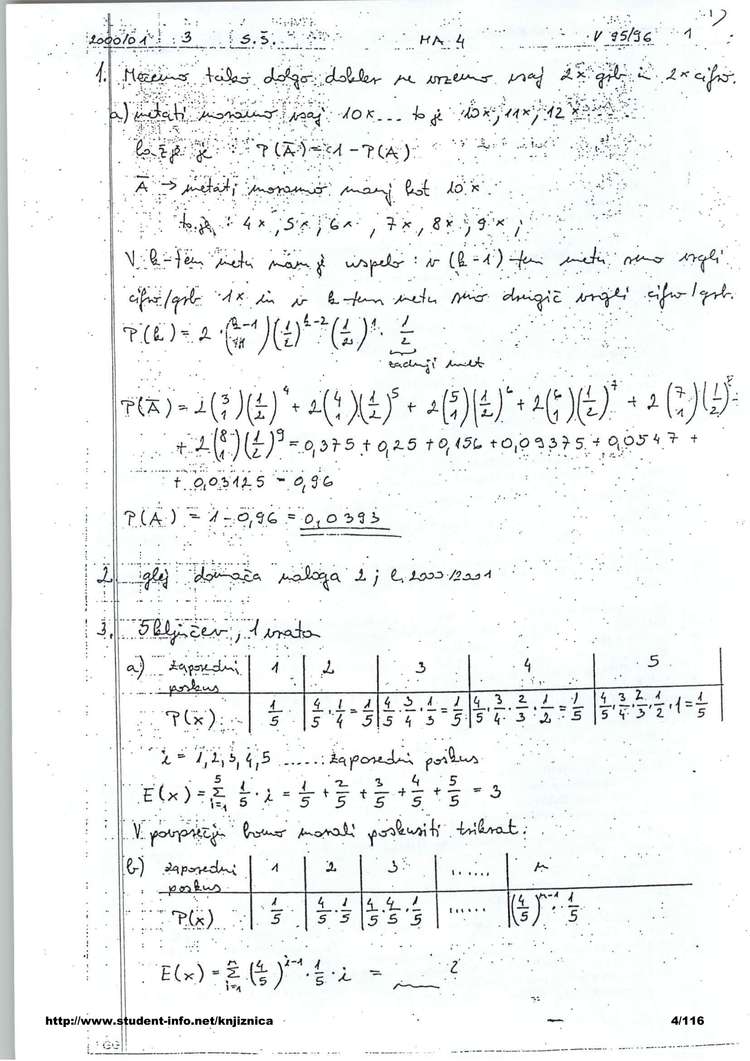 2000/01 3 S.Š. MA 4 V 95/96 1
1. Mečemo tako dolgo dokler ne vržemo vsaj 2x grb in 2x cifro.
a) metati moramo vsaj 10x... to je 10x, 11x, 12x
lažje je : P(Ā) = 1 - P(A)
Ā → metati moramo manj kot 10x
to je : 4x, 5x, 6x, 7x, 8x, 9x ;
V k-tem metu nam je uspelo : v (k-1)-tem metu smo vrgli
cifro/grb 1x in v k-tem metu smo drugič vrgli cifro/grb.
P(k) = 2 · (k-1 1) (1/2)^(k-2) (1/2)^1 · 1/2
zadnji met
P(Ā) = 2(3 1)(1/2)^4 + 2(4 1)(1/2)^5 + 2(5 1)(1/2)^6 + 2(6 1)(1/2)^7 + 2(7 1)(1/2)^8 +
+ 2(8 1)(1/2)^9 = 0,375 + 0,25 + 0,156 + 0,09375 + 0,0547 +
+ 0,03125 = 0,96
P(A) = 1 - 0,96 = 0,0393
2. glej domača naloga 2 ; l. 2000/2001
3. 5 ključev, 1 vrata
a) zaporedni poskus | 1 | 2 | 3 | 4 | 5
P(x) | 1/5 | 4/5 · 1/4 = 1/5 | 4/5 · 3/4 · 1/3 = 1/5 | 4/5 · 3/4 · 2/3 · 1/2 = 1/5 | 4/5 · 3/4 · 2/3 · 1/2 · 1 = 1/5
i = 1, 2, 3, 4, 5 ...... zaporedni poskus
E(x) = Σ i=1 5 1/5 · i = 1/5 + 2/5 + 3/5 + 4/5 + 5/5 = 3
V povprečju bomo morali poskusiti trikrat.
b) zaporedni poskus | 1 | 2 | 3 | ...... | n
P(x) | 1/5 | 4/5 · 1/5 | 4/5 · 4/5 · 1/5 | ...... | (4/5)^(n-1) · 1/5
E(x) = Σ i=1 n (4/5)^(i-1) · 1/5 · i = ___ ?
http://www.student-info.net/knjiznica 4/116